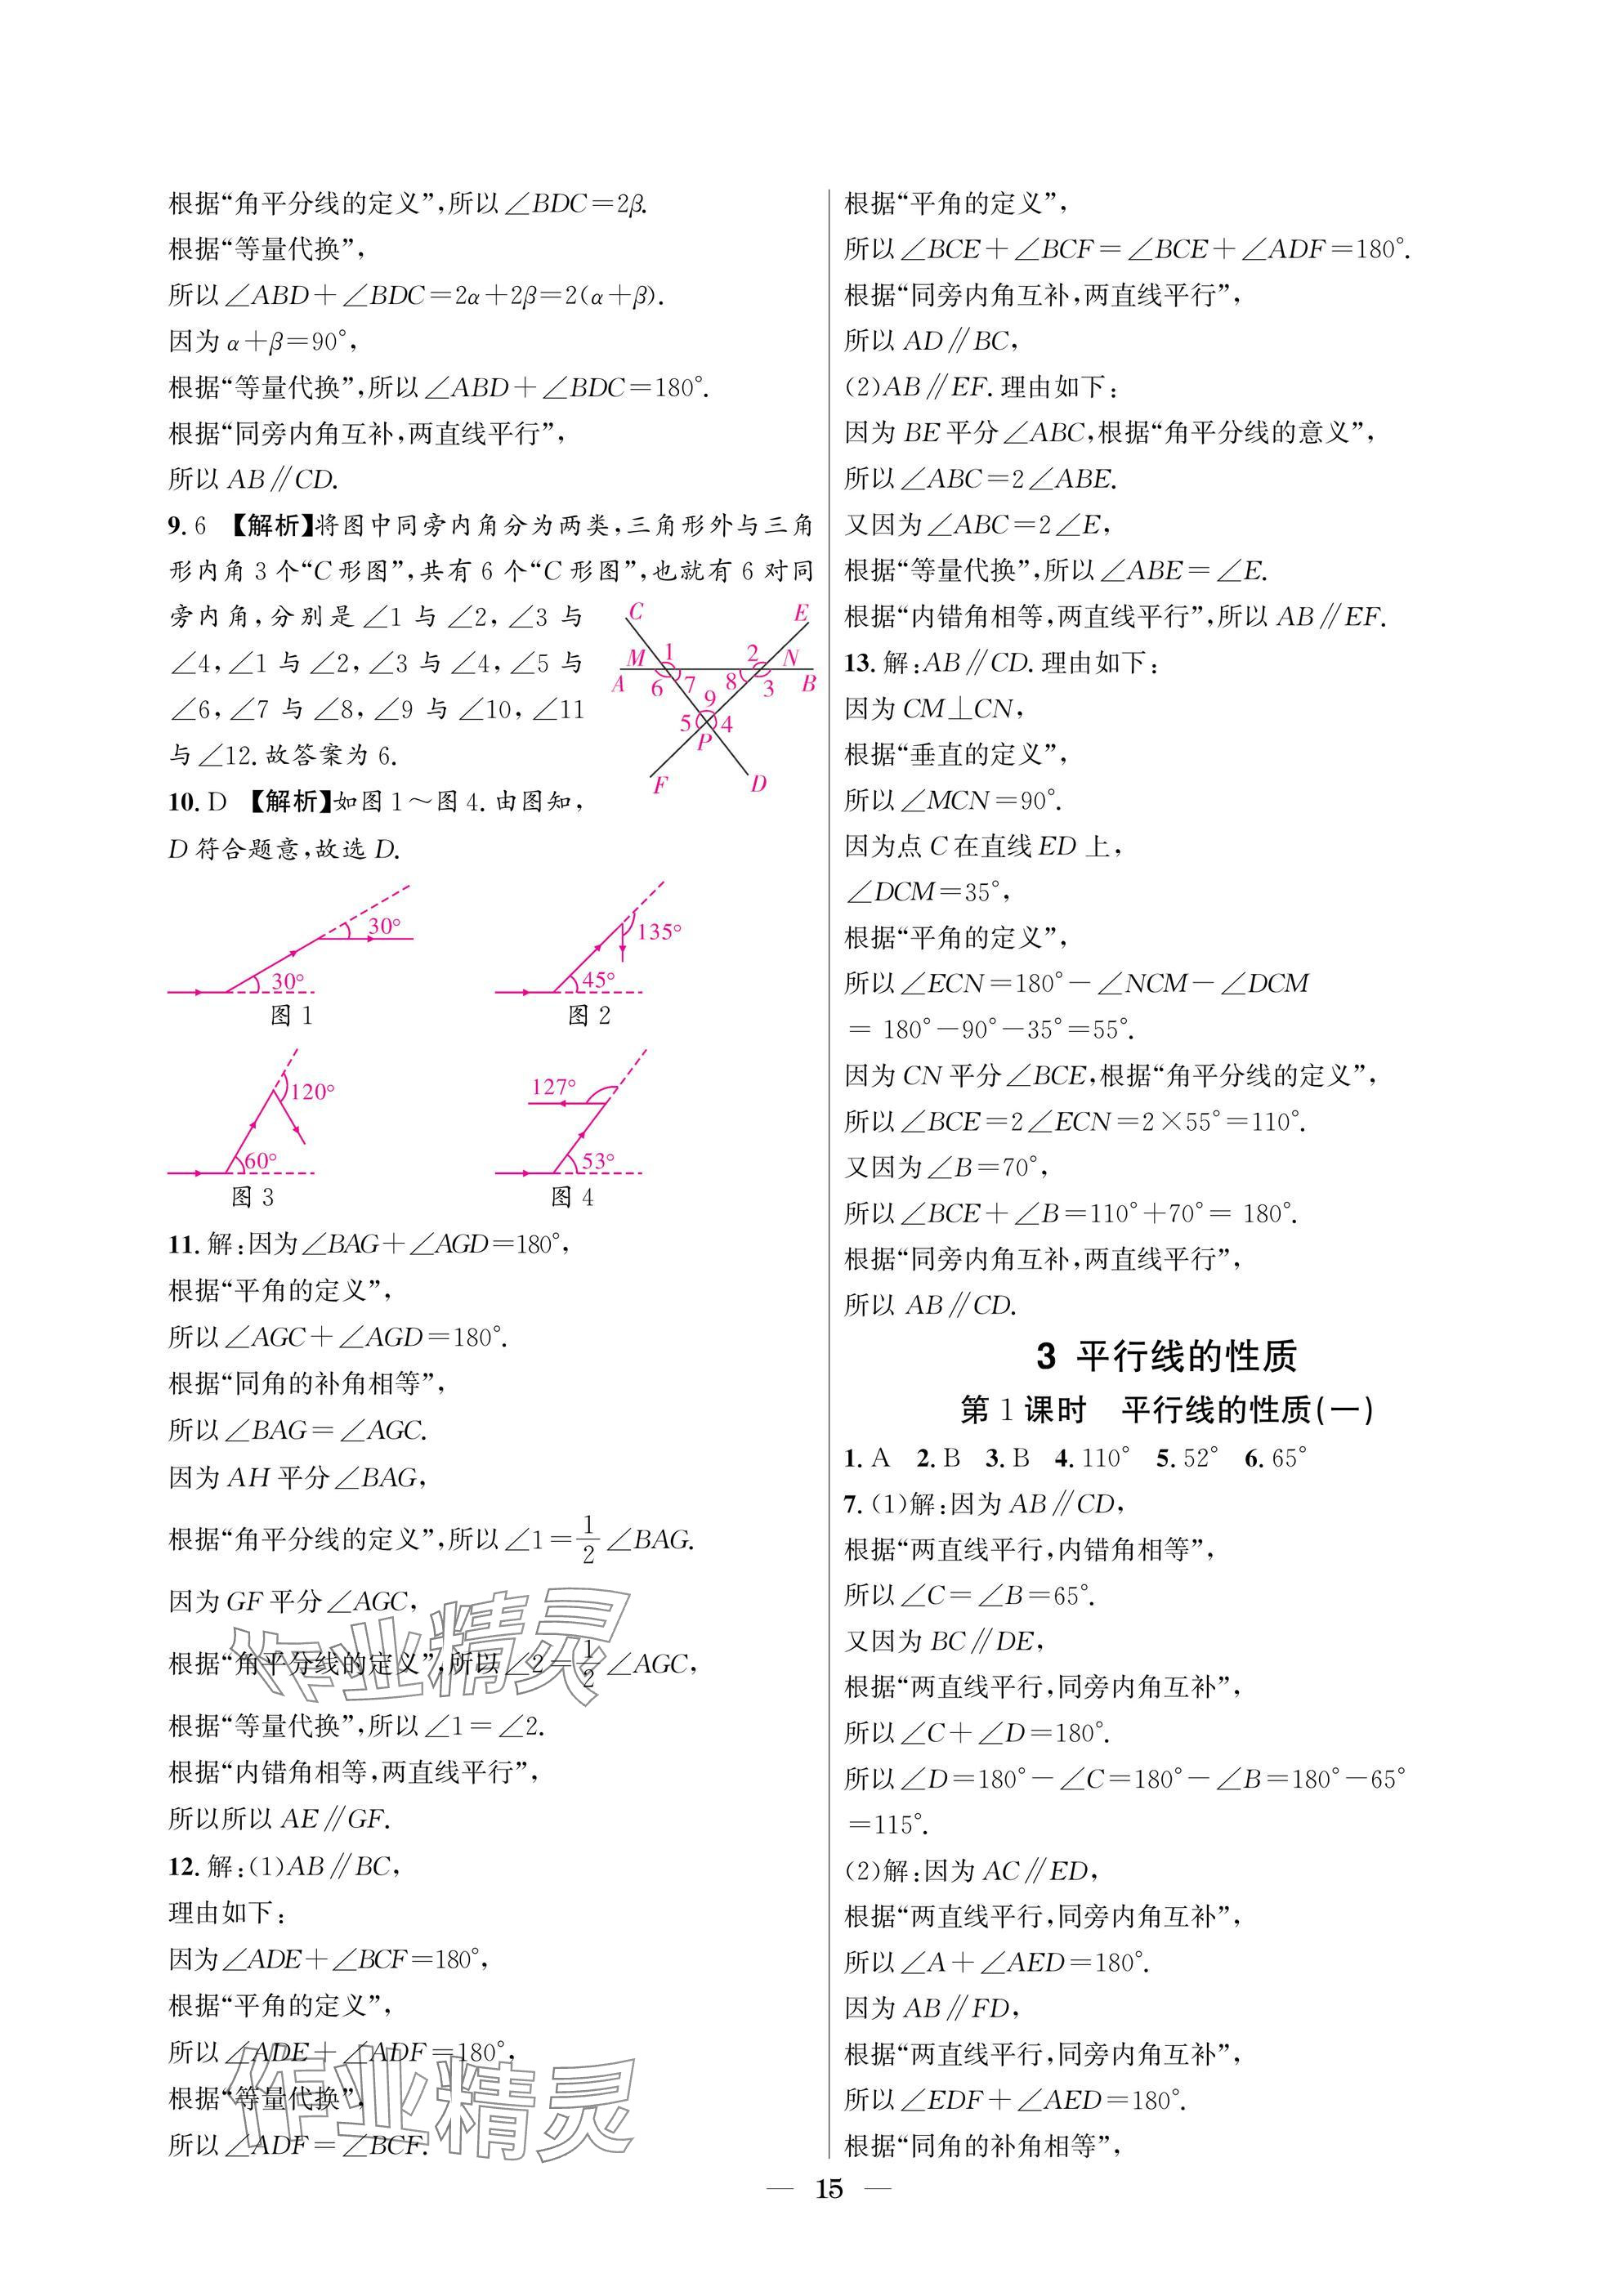 根据“角平分线的定义”,所以∠BDC=2β.
根据“等量代换”,
所以∠ABD+∠BDC=2α+2β=2(α+β).
因为α+β=90°,
根据“等量代换”,所以∠ABD+∠BDC=180°.
根据“同旁内角互补,两直线平行”,
所以AB∥CD.
9. 6 【解析】将图中同旁内角分为两类,三角形外与三角
形内角3个“C形图”,共有6个“C形图”,也就有6对同
旁内角,分别是∠1与∠2,∠3与
∠4,∠1与∠2,∠3与∠4,∠5与
∠6,∠7与∠8,∠9与∠10,∠11
与∠12.故答案为6.
C E
M 1 2 N
A 6 7 8 3 B
9
5 4
P
F D
10. D 【解析】如图1~图4.由图知,
D符合题意,故选D.
30° 30° 图1
135° 45° 图2
120° 60° 图3
127° 53° 图4
11. 解:因为∠BAG+∠AGD=180°,
根据“平角的定义”,
所以∠AGC+∠AGD=180°.
根据“同角的补角相等”,
所以∠BAG=∠AGC.
因为AH平分∠BAG,
根据“角平分线的定义”,所以∠1=1/2∠BAG.
因为GF平分∠AGC,
根据“角平分线的定义”,所以∠2=1/2∠AGC,
根据“等量代换”,所以∠1=∠2.
根据“内错角相等,两直线平行”,
所以所以AE∥GF.
12. 解:(1)AB∥BC,
理由如下:
因为∠ADE+∠BCF=180°,
根据“平角的定义”,
所以∠ADE+∠ADF=180°,
根据“等量代换”,
所以∠ADF=∠BCF.
根据“平角的定义”,
所以∠BCE+∠BCF=∠BCE+∠ADF=180°.
根据“同旁内角互补,两直线平行”,
所以AD∥BC,
(2)AB∥EF.理由如下:
因为BE平分∠ABC,根据“角平分线的意义”,
所以∠ABC=2∠ABE.
又因为∠ABC=2∠E,
根据“等量代换”,所以∠ABE=∠E.
根据“内错角相等,两直线平行”,所以AB∥EF.
13. 解:AB∥CD.理由如下:
因为CM⊥CN,
根据“垂直的定义”,
所以∠MCN=90°.
因为点C在直线ED上,
∠DCM=35°,
根据“平角的定义”,
所以∠ECN=180°-∠NCM-∠DCM
= 180°-90°-35°=55°.
因为CN平分∠BCE,根据“角平分线的定义”,
所以∠BCE=2∠ECN=2×55°=110°.
又因为∠B=70°,
所以∠BCE+∠B=110°+70°= 180°.
根据“同旁内角互补,两直线平行”,
所以AB∥CD.
3 平行线的性质
第1课时 平行线的性质(一)
1. A 2. B 3. B 4. 110° 5. 52° 6. 65°
7. (1)解:因为AB∥CD,
根据“两直线平行,内错角相等”,
所以∠C=∠B=65°.
又因为BC∥DE,
根据“两直线平行,同旁内角互补”,
所以∠C+∠D=180°.
所以∠D=180°-∠C=180°-∠B=180°-65°
=115°.
(2)解:因为AC∥ED,
根据“两直线平行,同旁内角互补”,
所以∠A+∠AED=180°.
因为AB∥FD,
根据“两直线平行,同旁内角互补”,
所以∠EDF+∠AED=180°.
根据“同角的补角相等”,
作业精灵
作业精灵
— 15 —